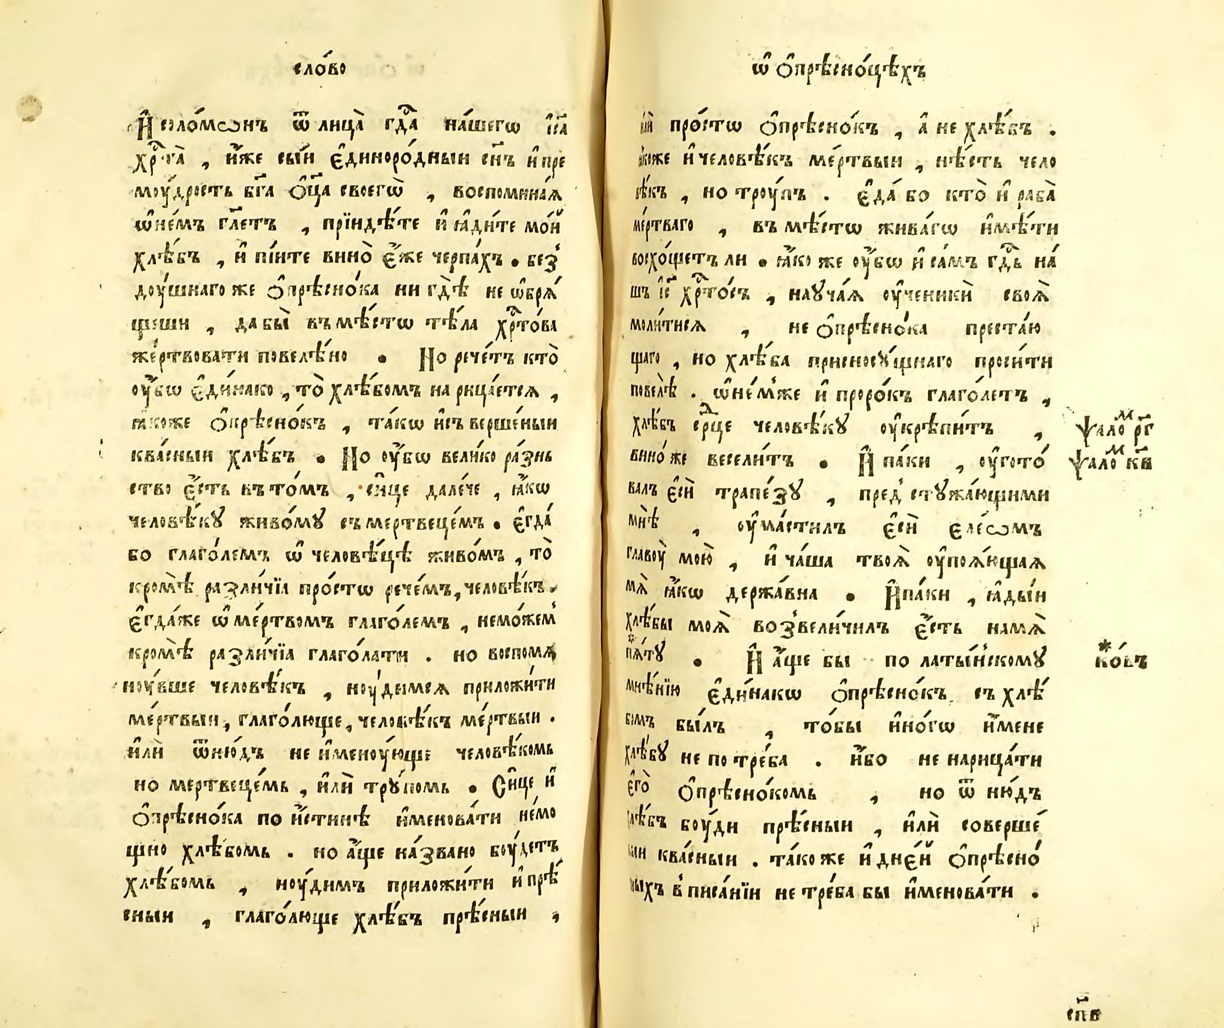 сло́во
И҆ соло́мѡнъ ѿ лица̀ гд҇а на́шегѡ і҆са
хр҇та̀ , и҆́же сыи є҆диноро́дныи сн҃ъ и҆ пре
моу́дрость бг҃а ѻ҆ц҃а своегѡ̀ , воспомина́я
ѡ҆ не́мъ гл҃етъ , прїиде́те и҆ ꙗ҆ди́те мо́й
хлѣ́бъ , и҆ пі́ите вино̀ є҆́же черпа́хъ . без̾
доу́шнаго же ѻ҆прѣсно́ка ни гдѣ̀ не ѡ҆бря́
щеши , да бы̀ въ мѣ́стѡ тѣ́ла хр҇то́ва
же́ртвовати повелѣ́но . Но рече́тъ кто̀
оу҆́бѡ є҆ди́нако , то̀ хлѣ́бомъ нарица́ется ,
ꙗ҆коже ѻ҆прѣсно́къ , та́кѡ и҆ съверше́ныи
ква́сныи хлѣ́бъ . Но оу҆́бѡ вели́ко ра́знь
ство є҆́сть въ то́мъ , си́це дале́че , ꙗ҆́кѡ
человѣ́кꙋ живо́мꙋ съ мертвеце́мъ . є҆гда́
бо глаго́лемъ ѡ҆ человѣ́цѣ живо́мъ , то̀
кромѣ̀ разли́чїа про́стѡ рече́мъ, человѣ́къ.
є҆гда́же ѡ҆ ме́ртвомъ глаго́лемъ , немо́жем̾
кромѣ̀ разли́чїа глаго́лати . но воспомя
ноу́вше человѣ́къ , ноу́димся приложи́ти
ме́ртвыи, глаго́люще, человѣ́къ ме́ртвыи .
и҆лѝ ѿню́дъ не и҆меноу́юще человѣ́комь
но мертвеце́мь , и҆лѝ трꙋ́помь . Си́це и҆
ѻ҆прѣсно́ка по и҆́стинѣ и҆менова́ти не́мо
щно хлѣ́бомь . но а҆́ще на́звано боу́детъ
хлѣ́бомь , ноу́димъ приложи́ти и҆ прѣ́
сныи , глаго́люще хлѣ́бъ прѣ́сныи ,
ѡ҆ ѻ҆прѣсно́цѣхъ
про́стѡ ѻ҆прѣсно́къ , а҆ не хлѣ́бъ .
ꙗ҆коже и҆ человѣ́къ ме́ртвыи , нѣ́сть чело
вѣ́къ , но троу́пъ . є҆да́ бо кто̀ и҆ раба̀
ме́ртваго , въ мѣ́стѡ жива́гѡ и҆мѣ́ти
восхо́щетъ ли . ꙗ҆́ко же оу҆́бѡ и҆ са́мъ гд҇ь на́
шъ і҆с҃ хр҇то́съ , науча́я оу҆ченикѝ своя̀
моли́тися , не ѻ҆прѣсно́ка преста́ю
щаго , но хлѣ́ба присносꙋ́щнаго проси́ти
повелѣ̀ . ѡ҆ не́мже и҆ проро́къ глаго́летъ ,
хлѣ́бъ ср҇це человѣ́кꙋ оу҆крѣпи́тъ ,
вино́ же весели́тъ . И҆ па́ки , оу҆гото́
валъ є҆сѝ трапе́зꙋ , пред̾ стꙋжа́ющими
мнѣ̀ , оу҆ма́стилъ є҆сѝ є҆ле́ѡмъ
главоу̀ мою̀ , и҆ ча́ша твоя̀ оу҆поя́ющая
мя̀ ꙗ҆́кѡ держа́вна . И҆ па́ки , ꙗ҆ды́и
хлѣ́бы моя̀ воз̾вели́чилъ є҆́сть намя̀
пя́тꙋ . И҆ а҆́ще бы по латы́нскомꙋ
мнѣ́нїю є҆ди́накѡ ѻ҆прѣсно́къ съ хлѣ́
бомъ бы́лъ , то бы и҆но́гѡ и҆́мене
хлѣ́бꙋ не по тре́ба . и҆́бо не нарица́ти
є҆го̀ ѻ҆прѣсно́комь , но ѿ ню́дъ
хлѣ́бъ боу́ди прѣ́сныи , и҆лѝ соверше́
ныи ква́сныи . тако́же и҆ дне́й ѻ҆прѣсно́
ныхъ в̾ писа́нїи не тре́ба бы и҆менова́ти .
ѱало́м рг҃
ѱало́м к҃в
*ко́въ
сп҃в